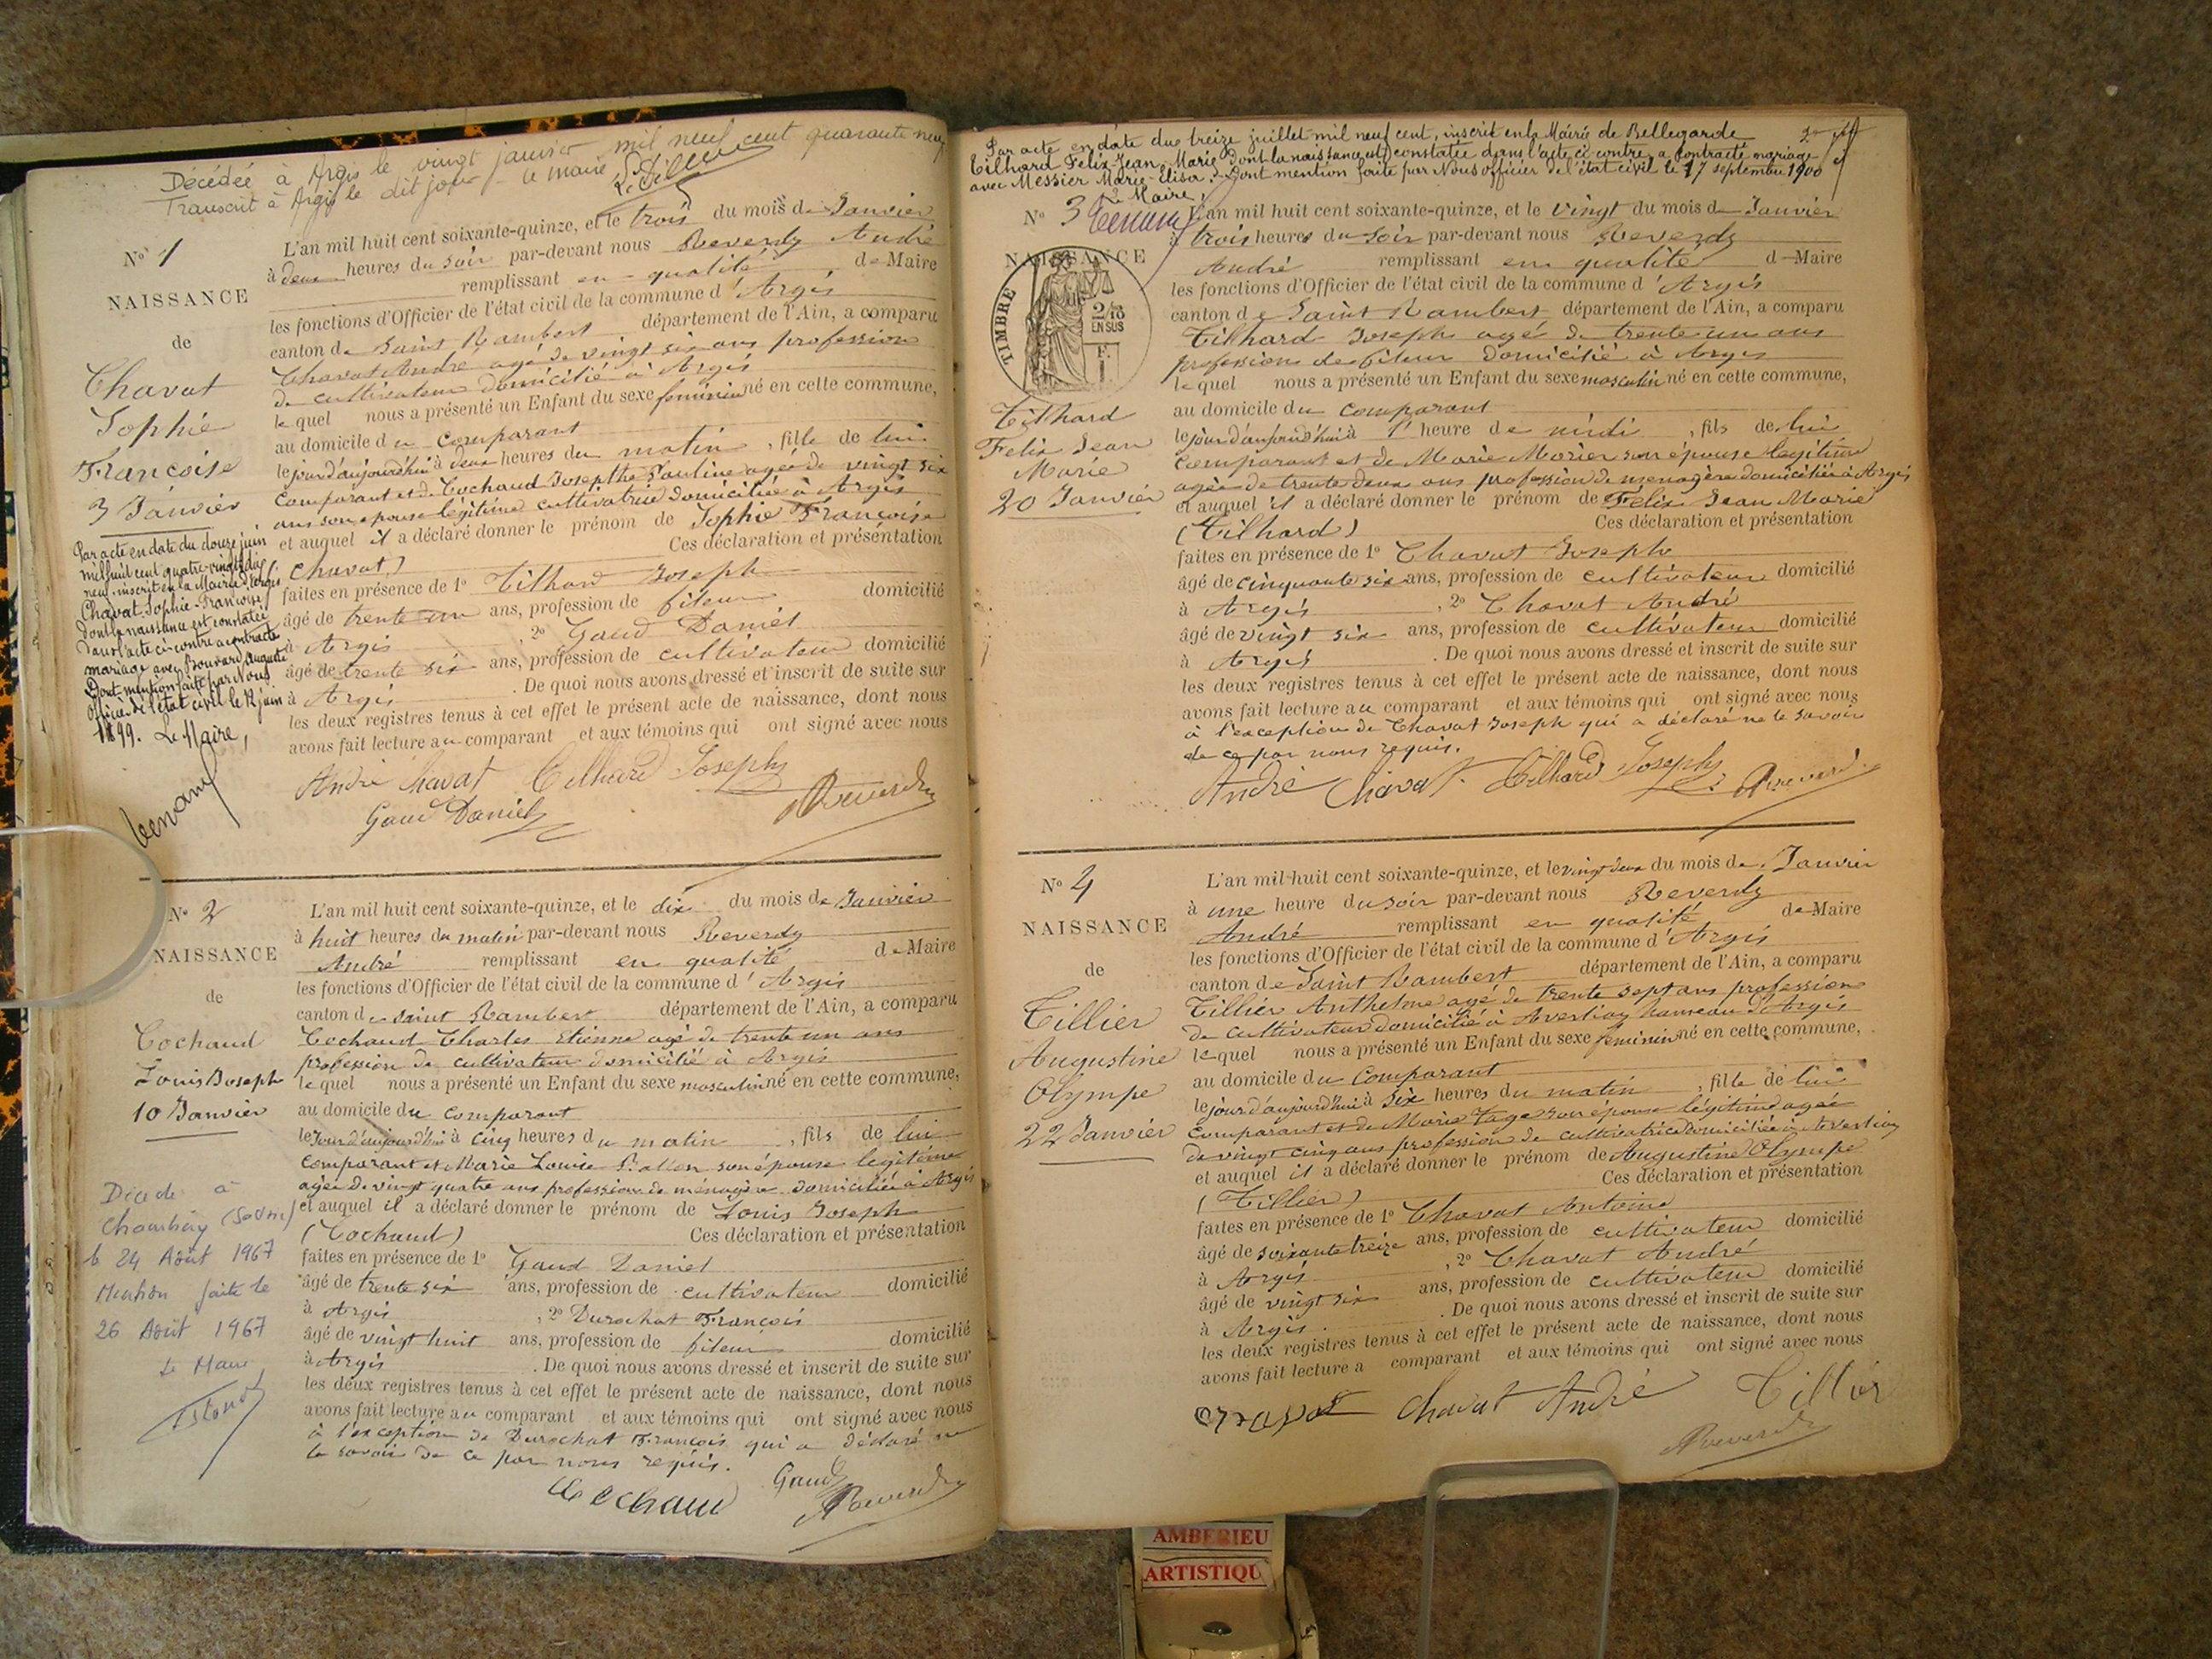 Décédée à Argis le vingt janvier mil neuf cent quarante neuf
Transcrit à Argis le dit jour - le maire
N° 1
NAISSANCE
de
Chavat
Sophie
Françoise
3 Janvier
Par acte en date du douze juin
mil huit cent quatre-vingt-dix
neuf inscrit en la Mairie d'Argis
Chavat Sophie-Françoise
dont la naissance est constatée
dans l'acte ci-contre a contracté
mariage avec Bouvard Auguste
Dont mention faite par Nous
officier de l'état civil le 12 juin
1899. Le Maire,
L'an mil huit cent soixante-quinze, et le trois du mois de Janvier
à deux heures du soir par-devant nous Reverdy André
remplissant en qualité de Maire
les fonctions d'Officier de l'état civil de la commune d'Argis
canton de Saint Rambert département de l'Ain, a comparu
Chavat André agé de vingt six ans profession
de cultivateur domicilié à Argis
lequel nous a présenté un Enfant du sexe féminin né en cette commune,
au domicile du comparant
le jour d'aujourd'hui à deux heures du matin, fille de lui
comparant et de Cochaud Josepthe Pauline agée de vingt six
ans son epouse légitime cultivatrice domiciliée à Argis
et auquel il a déclaré donner le prénom de Sophie Françoise
(Chavat) Ces déclaration et présentation
faites en présence de 1° Tilhard Joseph
âgé de trente un ans, profession de fileur domicilié
à Argis, 2° Gaud Daniel
âgé de trente six ans, profession de cultivateur domicilié
à Argis. De quoi nous avons dressé et inscrit de suite sur
les deux registres tenus à cet effet le présent acte de naissance, dont nous
avons fait lecture au comparant et aux témoins qui ont signé avec nous
André Chavat Tilhard Joseph
Gaud Daniel Reverdy
N° 2
NAISSANCE
de
Cochaud
Louis Joseph
10 Janvier
Décédé à
Chambéry (Savoie)
le 24 Août 1967
Mention faite le
26 Août 1967
Le Maire
L'an mil huit cent soixante-quinze, et le dix du mois de Janvier
à huit heures du matin par-devant nous Reverdy
André remplissant en qualité de Maire
les fonctions d'Officier de l'état civil de la commune d'Argis
canton de Saint Rambert département de l'Ain, a comparu
Cochaud Charles Etienne agé de trente un ans
profession de cultivateur domicilié à Argis
lequel nous a présenté un Enfant du sexe masculin né en cette commune,
au domicile du comparant
le jour d'aujourd'hui à cinq heures du matin, fils de lui
comparant et Marie Louise son épouse légitime
agée de vingt quatre ans profession de ménagère domiciliée à Argis
et auquel il a déclaré donner le prénom de Louis Joseph
(Cochaud) Ces déclaration et présentation
faites en présence de 1° Gaud Daniel
âgé de trente six ans, profession de cultivateur domicilié
à Argis, 2° Durochat François
âgé de vingt huit ans, profession de fileur domicilié
à Argis. De quoi nous avons dressé et inscrit de suite sur
les deux registres tenus à cet effet le présent acte de naissance, dont nous
avons fait lecture au comparant et aux témoins qui ont signé avec nous
à l'exception de Durochat François qui a déclaré ne
le savoir de ce par nous requis.
Cochaud Gaud Reverdy
Par acte en date du treize juillet mil neuf cent, inscrit en la Mairie de Bellegarde
Tilhard Felix Jean Marie dont la naissance est constatée dans l'acte ci-contre, a contracté mariage
avec Messier Marie-Elisa. Dont mention faite par Nous officier de l'état civil le 17 septembre 1900
Le Maire,
N° 3
NAISSANCE
TIMBRE
2/10
EN SUS
F.
Tilhard
Felix Jean
Marie
20 Janvier
L'an mil huit cent soixante-quinze, et le vingt du mois de Janvier
à trois heures du soir par-devant nous Reverdy
André remplissant en qualité d Maire
les fonctions d'Officier de l'état civil de la commune d'Argis
canton de Saint Rambert département de l'Ain, a comparu
Tilhard Joseph agé de trente un ans
profession de fileur domicilié à Argis
lequel nous a présenté un Enfant du sexe masculin né en cette commune,
au domicile du comparant
le jour d'aujourd'hui à 1 heure de midi, fils de lui
comparant et de Marie Morier son épouse légitime
agée de trente deux ans profession de menagère domiciliée à Argis
et auquel il a déclaré donner le prénom de Félix Jean Marie
(Tilhard) Ces déclaration et présentation
faites en présence de 1° Chavat Joseph
âgé de cinquante six ans, profession de cultivateur domicilié
à Argis, 2° Chavat André
âgé de vingt six ans, profession de cultivateur domicilié
à Argis. De quoi nous avons dressé et inscrit de suite sur
les deux registres tenus à cet effet le présent acte de naissance, dont nous
avons fait lecture au comparant et aux témoins qui ont signé avec nous
à l'exception de Chavat Joseph qui a déclaré ne le savoir
de ce par nous requis.
André Chavat Tilhard Joseph Reverdy
N° 4
NAISSANCE
de
Tillier
Augustine
Olympe
22 Janvier
L'an mil huit cent soixante-quinze, et le vingt deux du mois de Janvier
à une heure du soir par-devant nous Reverdy
André remplissant en qualité de Maire
les fonctions d'Officier de l'état civil de la commune d'Argis
canton de Saint Rambert département de l'Ain, a comparu
Tillier Anthelme agé de trente sept ans profession
de cultivateur domicilié à Averliaz hameau d'Argis
lequel nous a présenté un Enfant du sexe feminin né en cette commune,
au domicile du comparant
le jour d'aujourd'hui à six heures du matin, fille de lui
comparant et de Marie Tage son épouse légitime agée
de vingt cinq ans profession de cultivatrice domiciliée à Averliaz
et auquel il a déclaré donner le prénom de Augustine Olympe
(Tillier) Ces déclaration et présentation
faites en présence de 1° Chavat Antoine
âgé de soixante treize ans, profession de cultivateur domicilié
à Argis, 2° Chavat André
âgé de vingt six ans, profession de cultivateur domicilié
à Argis. De quoi nous avons dressé et inscrit de suite sur
les deux registres tenus à cet effet le présent acte de naissance, dont nous
avons fait lecture a comparant et aux témoins qui ont signé avec nous
Chavat André Tillier
Reverdy
AMBERIEU
ARTISTIQU